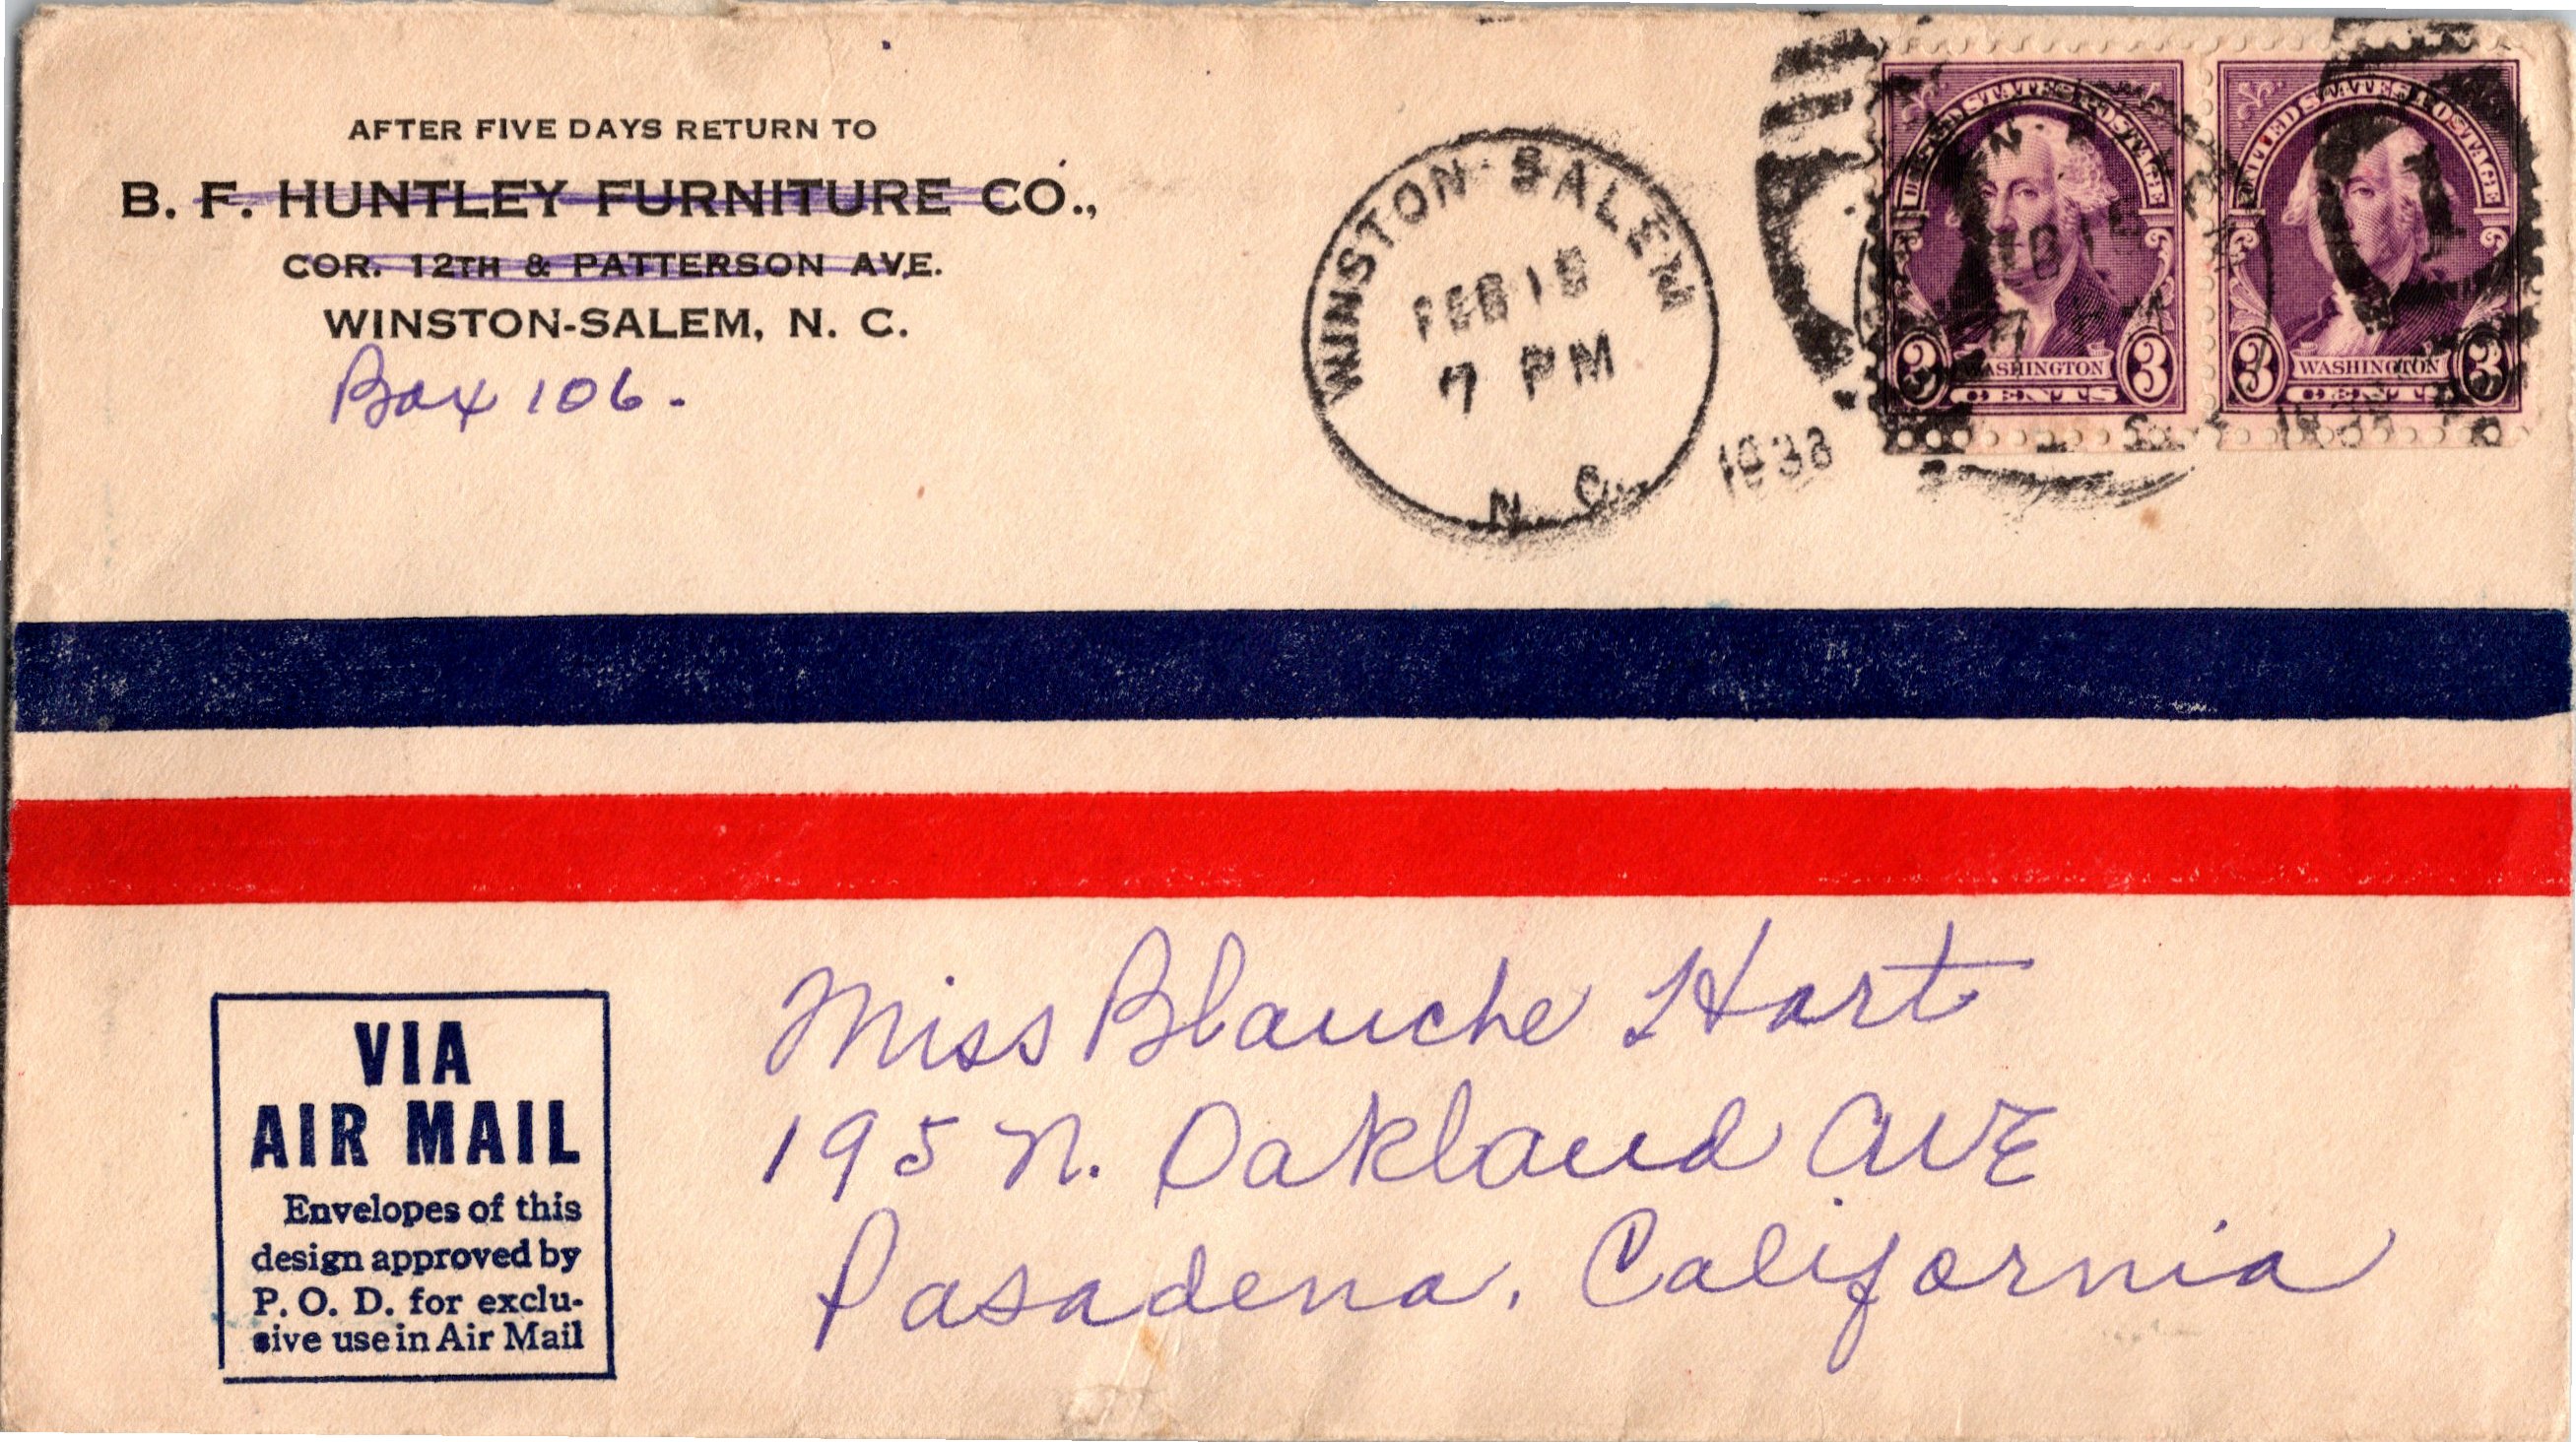 AFTER FIVE DAYS RETURN TO
B. F. HUNTLEY FURNITURE CO.,
COR. 12TH & PATTERSON AVE.
WINSTON-SALEM, N. C.
Box 106.
WINSTON-SALEM
FEB 15
7 PM
N. C.
1938
UNITED STATES POSTAGE
3 WASHINGTON 3
CENTS
UNITED STATES POSTAGE
3 WASHINGTON 3
CENTS
1
VIA
AIR MAIL
Envelopes of this
design approved by
P. O. D. for exclu-
sive use in Air Mail
Miss Blanche Hart
195 N. Oakland AVE
Pasadena, California